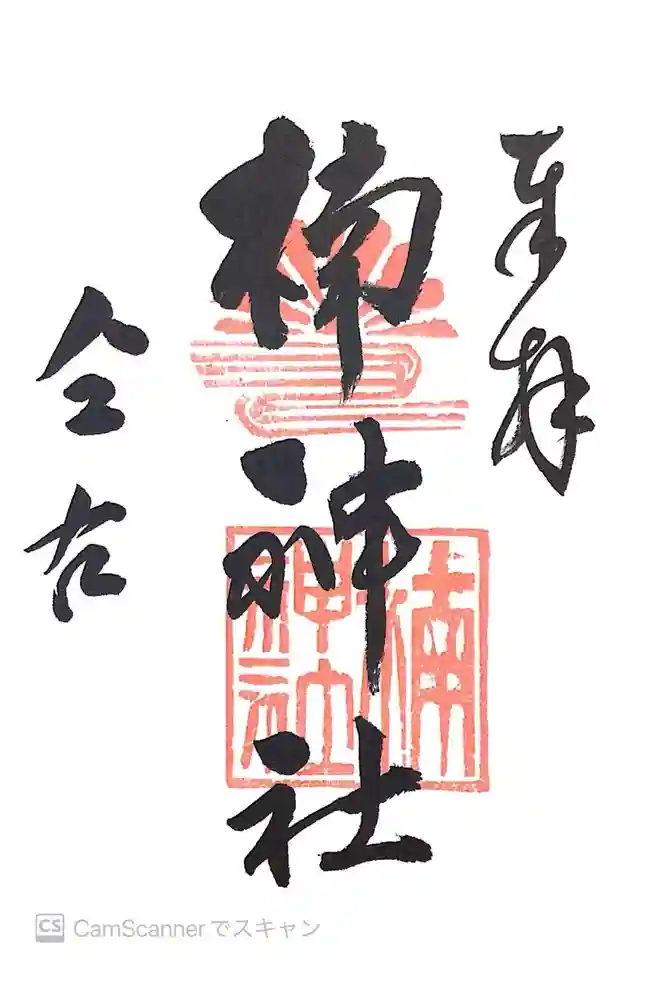 奉拝
楠神社
仝右
楠
神社
CS CamScannerでスキャン